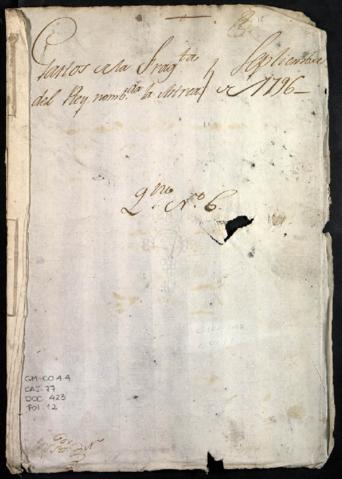 Gastos de la Fragta Septiembre
del Rey nombda la Astrea } de 1796
Qno No. 6.
GM-CO 4.4
CAJ. 77
DOC. 423
FOL. 12